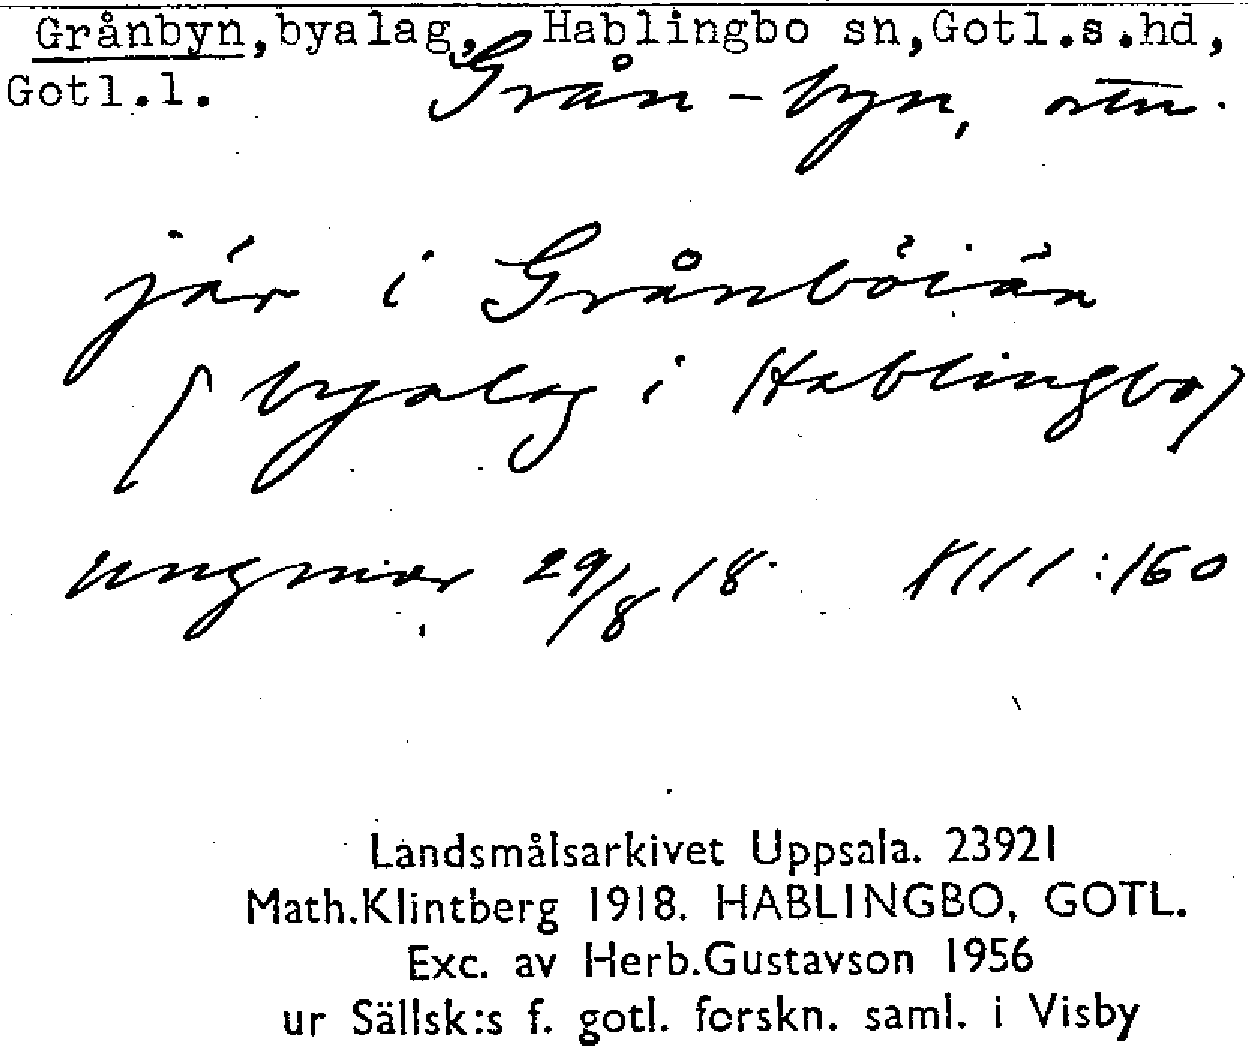 Grånbyn,byalag, Hablingbo sn,Gotl.s.hd,
Gotl.l. Grån-byn, otn.
jär i Grånböiän
(byalag i Hablingbo)
Ungmor 29/8 18. VIII:160
Landsmålsarkivet Uppsala. 23921
Math.Klintberg 1918. HABLINGBO, GOTL.
Exc. av Herb.Gustavson 1956
ur Sällsk:s f. gotl. forskn. saml. i Visby